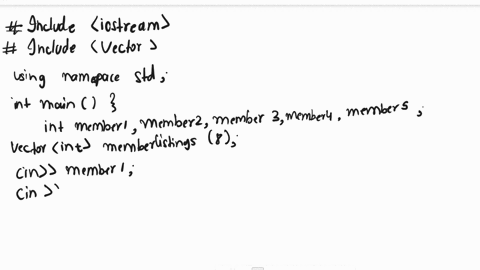 # Include <iostream>
# Include <Vector>
using namespace std;
int main() }
int member1, member2, member 3, member4, member5 ;
Vector <int> memberlistings (8);
Cin>> member1;
Cin >>